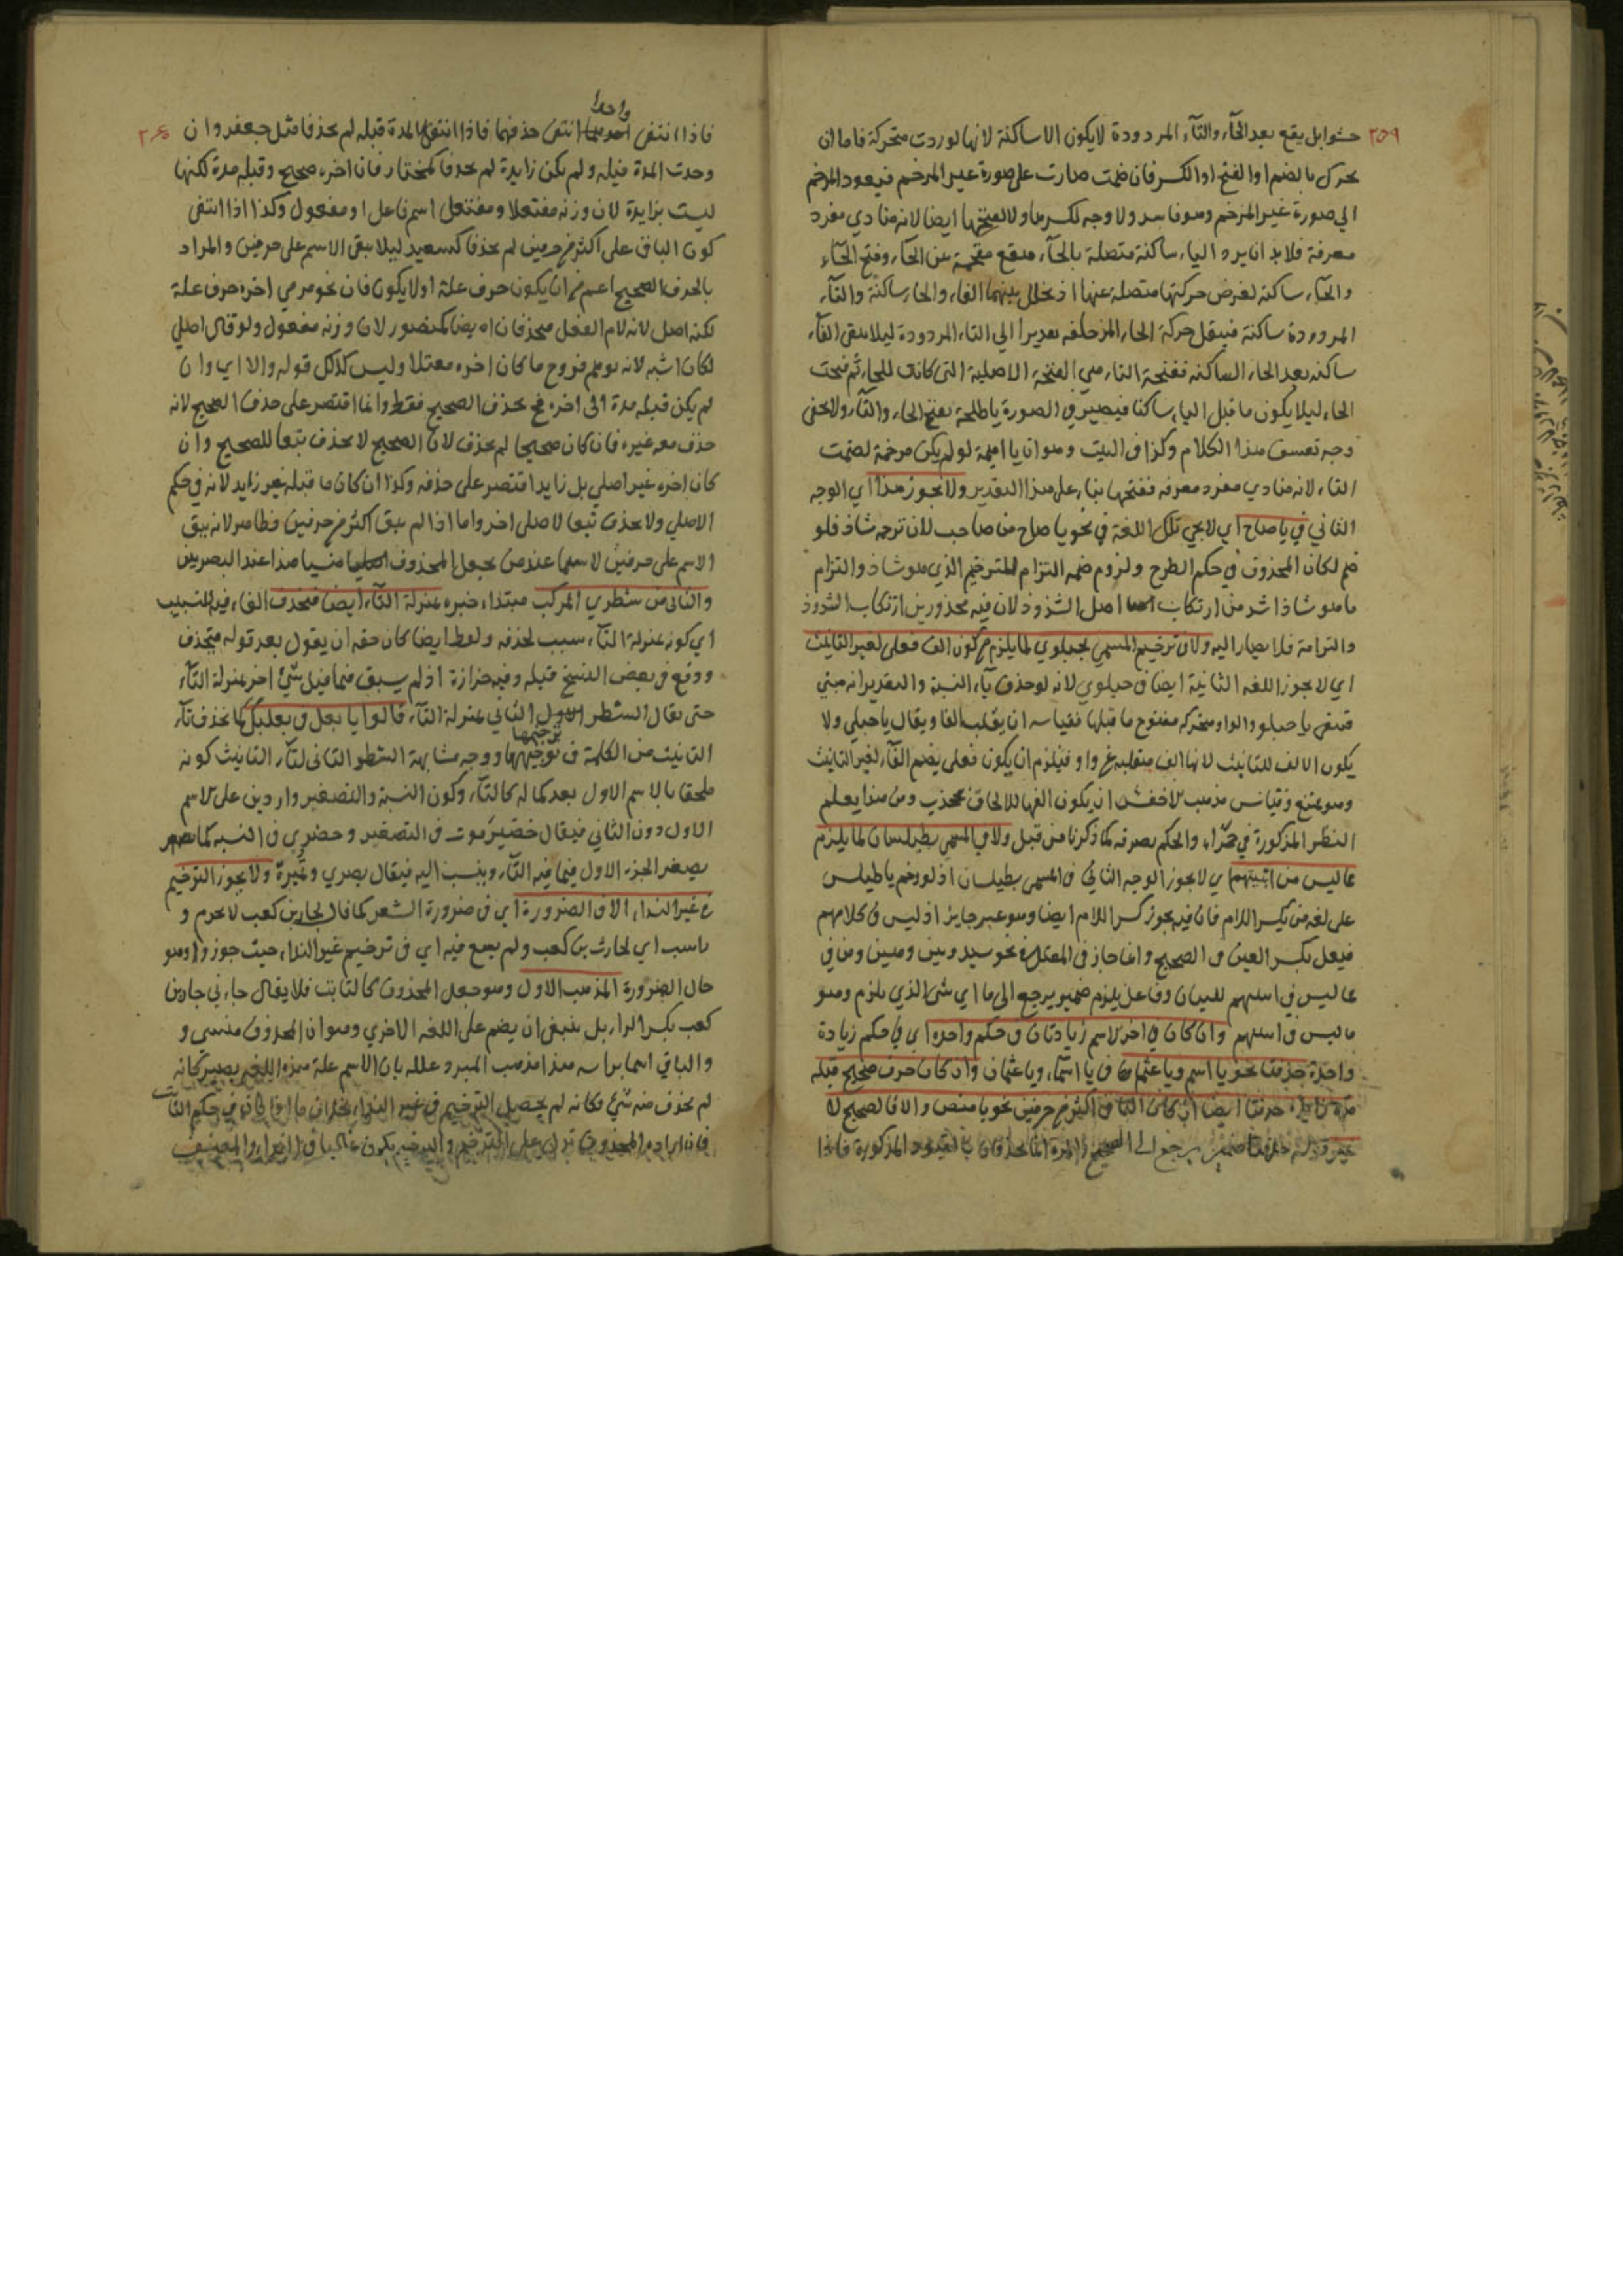 ٢٥٩
حشوا بل يقع بعد الحآء والتآء المردودة لا يكون الا ساكنة لانها لو ردت متحركة فاما ان
يحرك بالضم او الفتح او الكسر فان ضمت صارت على صورة غير المرخم فيعود المرخم
الى صورة غير المرخم وهو فاسد ولا وجه لكسرها ولا لفتحها ايضا لانه منادي مفرد
معرفة فلا بد ان يرد اليا ساكنة متصلة بالحآء فتقع مقحمة بين الحآء وفتح الحآء
والحآء ساكنة لفرض حركتها متصلة عنها اذ تخلل بينهما الفاء والحاء ساكنة والتآء
المردودة ساكنة فينقل حركة الحاء المزحلفه تقديرا الي التاء المردودة ليلا يبقى التآء
ساكنه بعد الحاء الساكنه ففتحة التاء هي الفتحة الاصلية التى كانت للحاء ثم فتحت
الحاء ليلا يكون ما قبل الياء ساكنا فيصير في الصورة يا طلحة بفتح الحاء والتآء ولا يخفى
وجه تعسف هذا الكلام وكذا في البيت وهو ان يا اميمة لو لم يكن مرخمة لضمت
التاء لانه منادي مفرد معرفه ففتحها بناء على هذا التقدير ولا يجوز هذا اي الوجه
الثاني في يا صاح اي لا يجي تلك اللغة في نحو يا صاح من صاحب لان ترخمه شاذ فلو
ضم لكان المحذوف في حكم الطرح ولزوم ضمه التزام للترخيم الذي هو شاذ والتزام
ما هو شاذ اشد من ارتكاب اصل الشذوذ لان فيه محذورين ارتكاب الشذوذ
والتزامة فلا يصار اليه ولا في ترخيم المسمي بحبلوي لما يلزم من كون الف فعلى لغير التانيث
اي لا يجوز اللغه الثانية ايضا في حبلوي لانه لو حذف يآء النسبة والتقدير انه مبني
فبقي يا حبلو والواو متحركه مفتوح ما قبلها فقياسه ان يقلب الفا ويقال يا حبلي ولا
يكون الالف للتانيث لانها الف منقلبه عن واو فيلزم ان يكون فعلى بضم الفآء لغير التانيث
وهو ممتنع وقياس مذهب الاخفش ان يكون الفها للالحاق بجخدب ومن هذا يعلم
النظر المذكورة في حمرآء والحكم بصرفه كما ذكرنا من قبل ولا في المسمي بطيلسان لما يلزم
ما ليس من ابنيتهم اي لا يجوز الوجه الثاني في المسمى بطيلسان اذ لو رخم يا طيلس
على لغة من يكسر اللام فان فيه يجوز كسر اللام ايضا وهو غير جايز اذ ليس في كلامهم
فيعل بكسر العين في الصحيح وانما جاز في المعتل نحو سيد وميت وهين ومن في
ما ليس في اسلهم للبيان وفاعل يلزم ضمير يرجع الى ما اي شى الذي يلزم وهو
ما ليس في اسلهم وان كان في اخر الاسم زيادتان في حكم واحده اي في حكم زيادة
واحدة حذفتا نحو يا اسم ويا عثم في يا اسمآء ويا عثمان وان كان حرف صحيح قبله
مدة زايدة حذفتا ايضا ان كان الباقي اكثر من حرفين نحو يا منص والا فالصحيح لا
غير وفي حذفتا ضمير يرجع الى الصحيح والمدة انما يحذفان بالقيود المذكورة فاذا
٢٦٠
واحدا
فاذا انتفى منها انتفى حذفهما فاذا انتفى المدة قبله لم يحذفا مثل جعفر وان
وجدت المدة قبله ولم يكن زايدة لم يحذفا كمختار فان اخره صحيح وقبله مدة لكنها
ليست بزايدة لان وزنه مفتعلا ومفتعل اسم فاعل او مفعول وكذا اذا انتفى
كون الباقي على اكثر من حرفين لم يحذفا كسعيد ليلا يبقى الاسم على حرفين والمراد
بالحرف الصحيح اعم من ان يكون حرف علة اولا يكون فان نحو مرمي اخره حرف علة
لكنه اصل لانه لام الفعل فيحذفان ايضا كمنصور لان وزنه مفعول ولو قال اصلي
لكان اشبه لانه يوهم خروج ما كان اخره معتلا وليس كذلك قوله والا اي وان
لم يكن قبله مدة الى اخره يحذف الصحيح فقط وانما اقتصر على حذف الصحيح لانه
حذف معه غيره فان كان صحيحا لم يحذف لان الصحيح لا يحذف تبعا للصحيح وان
كان اخره غير اصلي بل زايدا اقتصر على حذفه وكذا ان كان ما قبله غير زايد لانه في حكم
الاصلي ولا يحذف تبعا لاصلى اخر واما اذا لم يبق اكثر من حرفين فظاهر لانه يبقى
الاسم على حرفين لا سيما عند من يجعل المحذوف منسيا هذا عند البصريين
والثانى من شطري المركب مبتداء خبره بمنزلة التآء ايضا فيحذف الفاء فيه للتسبيب
اي كونه بمنزلة التآء سبب لحذفه ولفظ ايضا كان حقه ان يقول بعد قوله فيحذف
ووقع في بعض النسخ قبله وفيه حزازة اذ لم يسبق فيما قبل شي اخر بمنزلة التآء
حتى يقال الشطر الثاني بمنزلة التآء قالوا يا بعل في بعلبك كما يحذف تآء
ترخيمها
التانيث من الكلمة في ووجه مشابهة الشطر الثانى لتآء التانيث كونه
ملحقا بالاسم الاول بعد كماله كالتآء وكون النسبة والتصغير واردين على الاسم
الاول دون الثاني فيقال حضيرموت في التصغير وحضري في النسبه كما
يصغر الجزء الاول فيما فيه التآء وينسب اليه فيقال بصري وتميرة ولا يجوز الترخيم
في غير النداء الا في الضرورة اي في ضرورة الشعر كما قال لحار بن كعب لا
اي لحارث بن كعب ولم يسمع فيه اي في ترخيم غير النداء حيث جوزوا وهو
حال الضرورة المذهب الاول وهو جعل المحذوف كالثابت فلا يقال جاءني حار بن
كعب بكسر الراء بل ينبغي ان يضم على اللغه الاخري وهو ان المحذوف منسى و
والباقي اسما براسه هذا مذهب المبرد وعلله بان الاسم علة هذه اللغه يصير كانه
لم يحذف منه شي فكانه لم يحصل الترخيم في غير النداء بخلاف ما اذا كان في حكم الثابت
فان ارادة المحذوف تدل على الترخيم والترخيم يكون